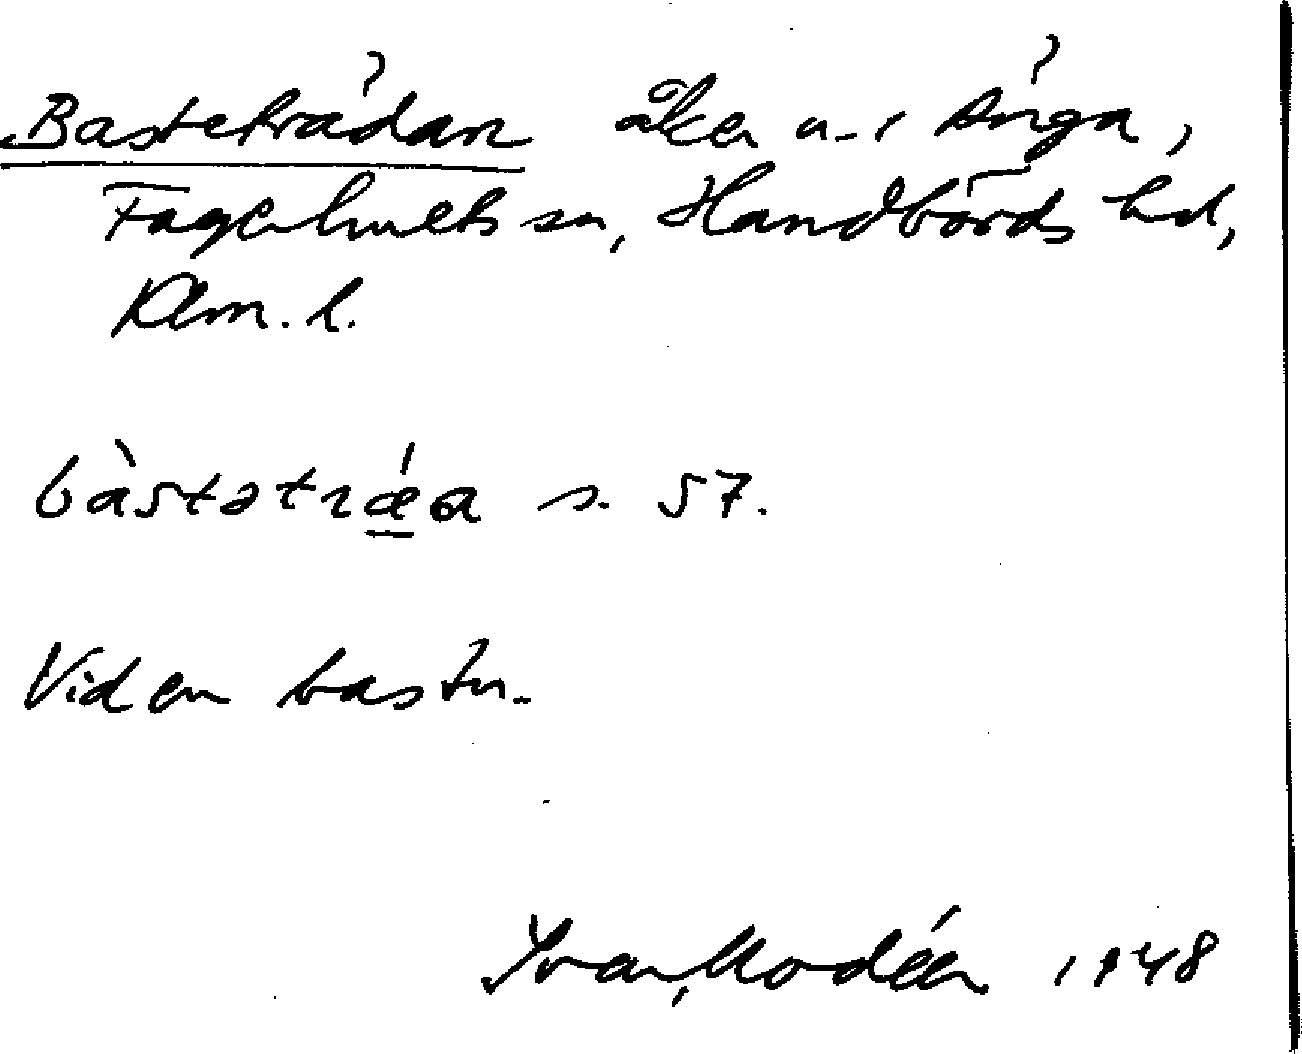 Basteträdan åker u. i Änga,
Fagerhults sn, Handbörds hd,
Klm. l.
bàstətrǽa s. 57.
Vid en bastu.
Ivar Modéer 1948